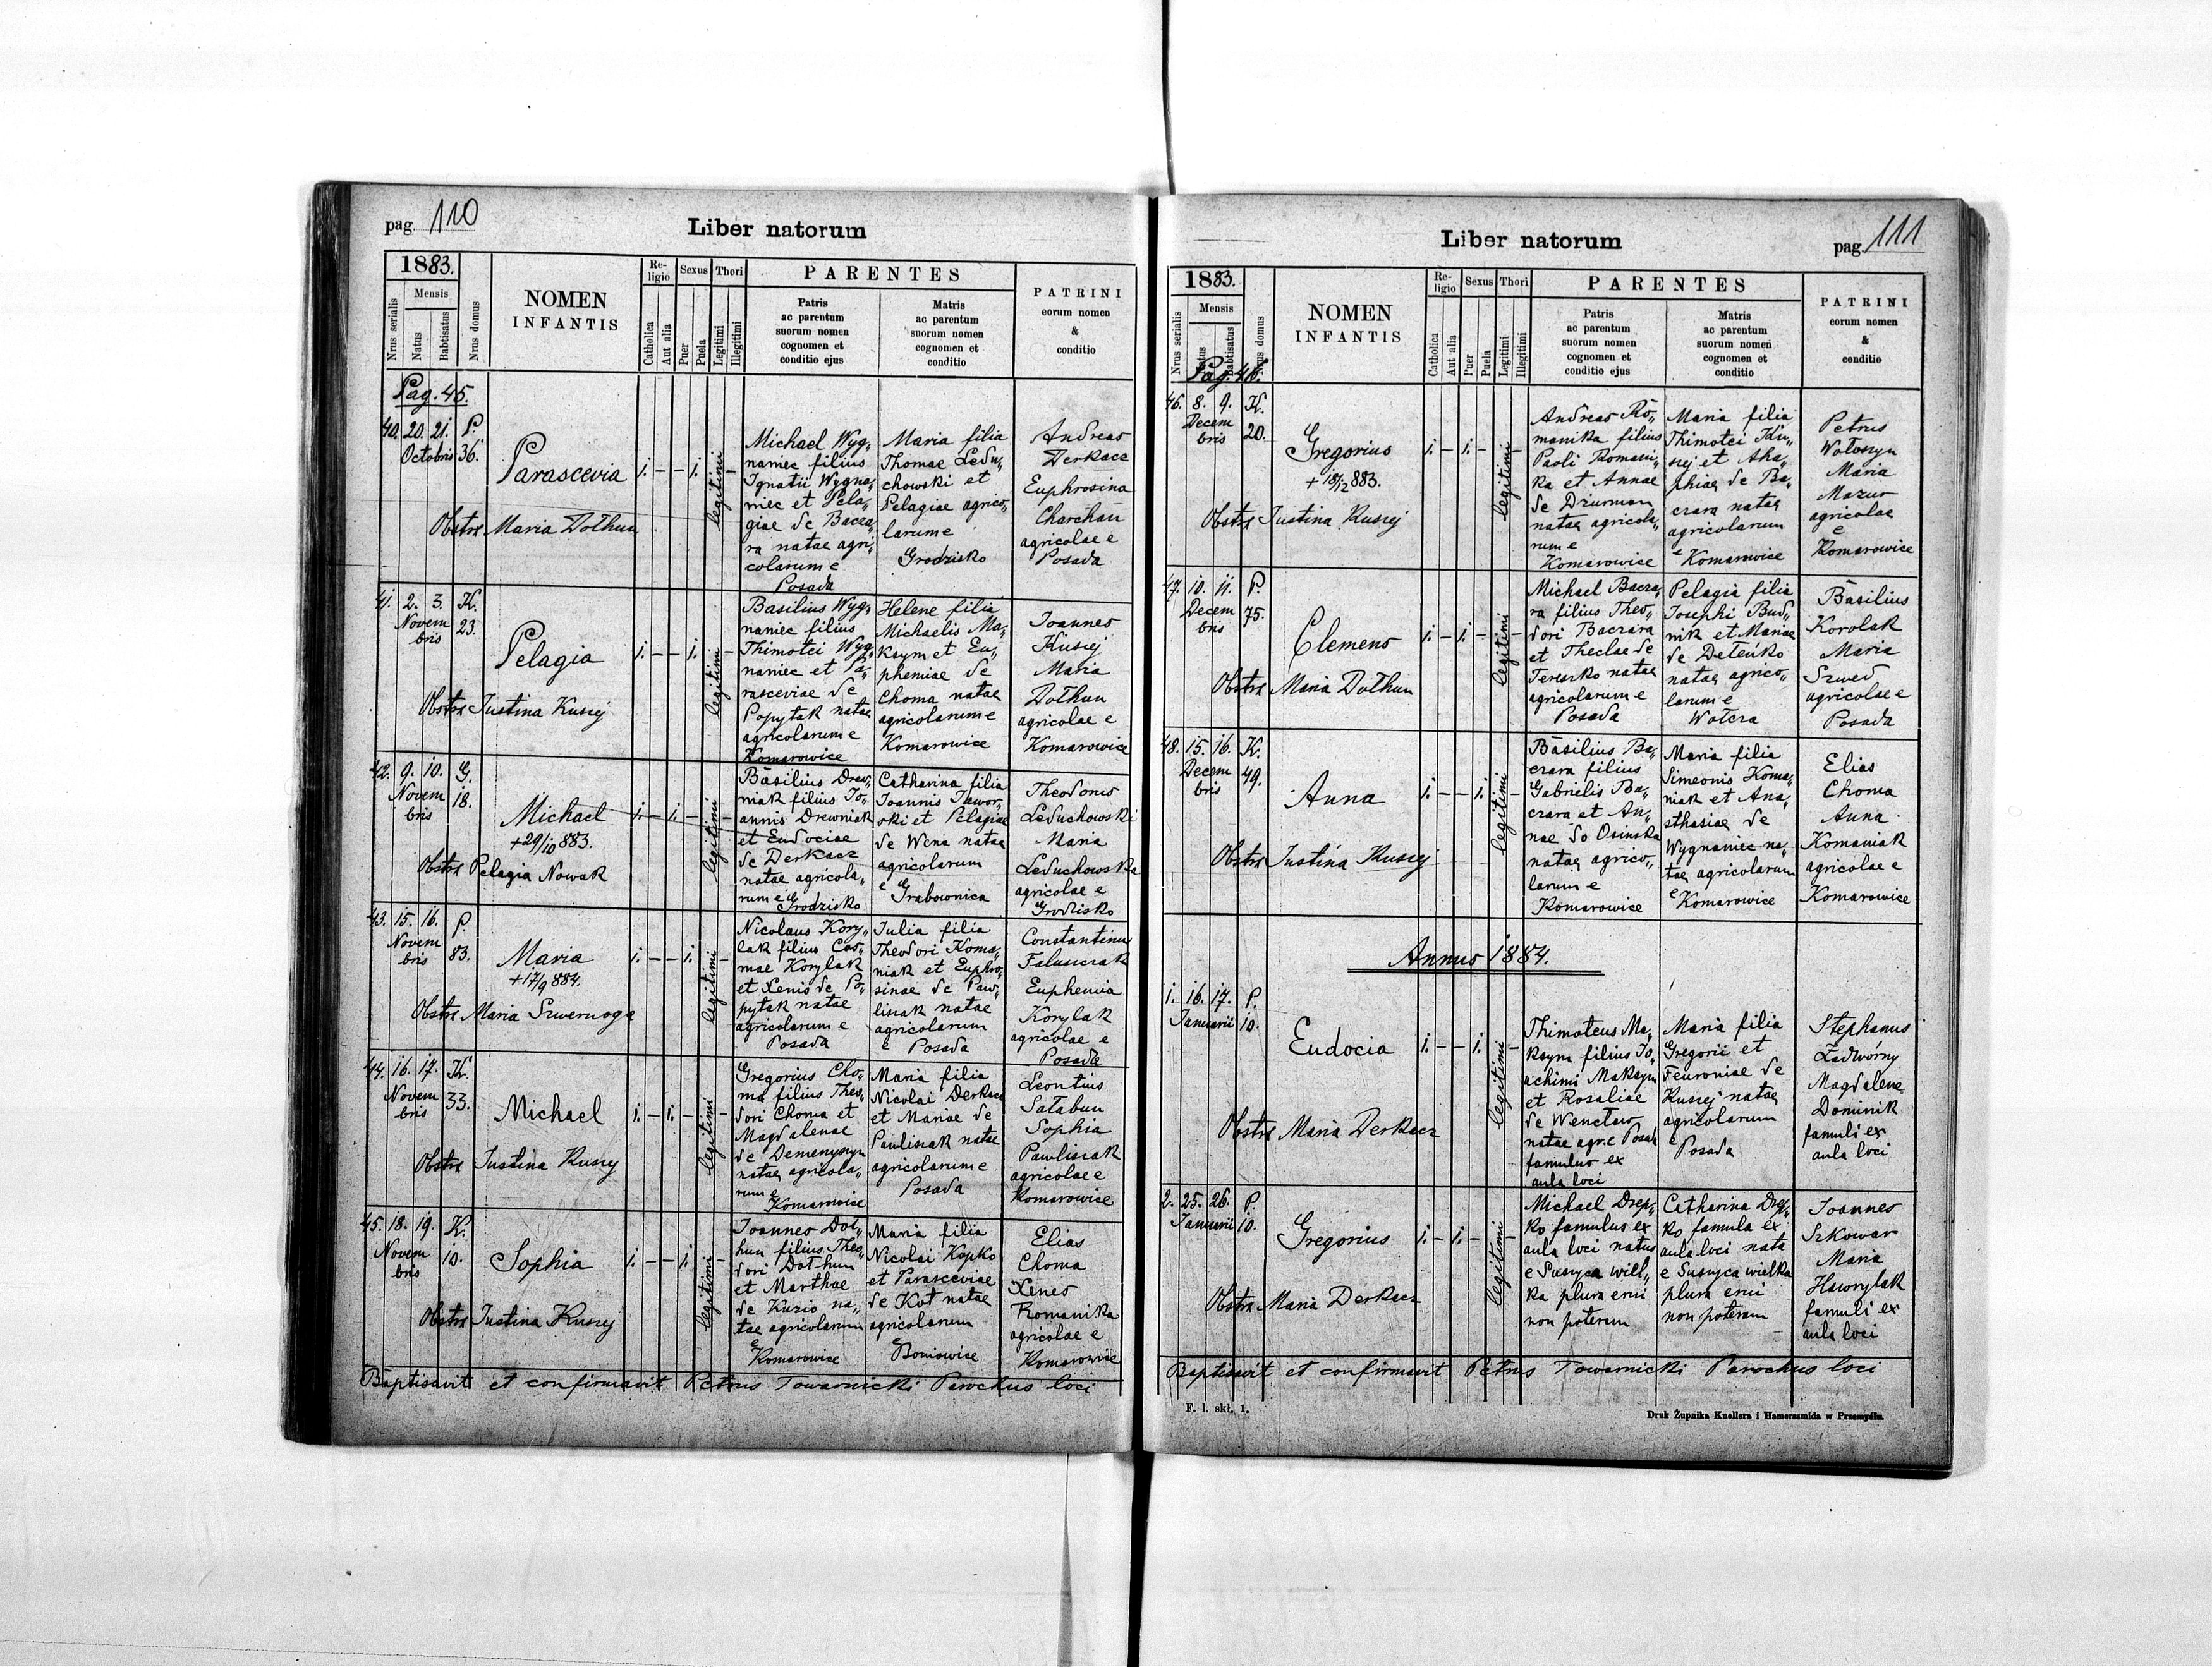 pag. 110
Liber natorum
1883.
Nrus serialis
Mensis
Natus
Babtisatus
Nrus domus
NOMEN
INFANTIS
Re-
ligio
Catholica
Aut alia
Sexus
Puer
Puela
Thori
Legitimi
Illegitimi
PARENTES
Patris
ac parentum
suorum nomen
cognomen et
conditio ejus
Matris
ac parentum
suorum nomen
cognomen et
conditio
PATRINI
eorum nomen
&
conditio
Pag. 45.
40. 20. 21. P.
Octobris 36.
Parascevia
1. – – 1. legitimi –
Obstrx Maria Dołhun
Michael Wyg„
naniec filius
Ignatii Wygna„
niec et Pela„
giae de Bacza„
ra natae agri„
colarum e
Posada
Maria filia
Thomae Ledu„
chowski et
Pelagiae agrico„
larum e
Grodzisko
Andreas
Derkacz
Euphrosina
Charchan
agricolae e
Posada
41. 2. 3. K.
Novem 23.
bris
Pelagia
1. – – 1. legitimi –
Obstrx Justina Kuszej
Basilius Wyg„
naniec filius
Thimotei Wyg„
naniec et Pa„
rasceviae de
Popytak natae
agricolarum e
Komarowice
Helene filia
Michaelis Ma„
ksym et Eu„
phemiae de
Choma natae
agricolarum e
Komarowice
Joannes
Kuszej
Maria
Dołhun
agricolae e
Komarowice
42. 9. 10. G.
Novem 18.
bris
Michael
+29/10 883.
1. – 1. – legitimi –
Obstrx Pelagia Nowak
Basilius Drew„
niak filius Jo„
annis Drewniak
et Eudociae
de Derkacz
natae agricola„
rum e Grodzisko
Catharina filia
Joannis Jawor„
ski et Pelagiae
de Wena natae
agricolarum
e Grabownica
Theodorus
Leduchowski
Maria
Leduchowska
agricolae e
Grodzisko
43. 15. 16. P.
Novem 83.
bris
Maria
+17/9 884.
1. – – 1. legitimi –
Obstrx Maria Szweruoga
Nicolaus Kory„
lak filius Cos„
mae Korylak
et Xenis de Po„
pytak natae
agricolarum e
Posada
Julia filia
Theodori Koma„
niak et Euphro„
sinae de Paw„
liszak natae
agricolarum
e Posada
Constantinus
Falusczak
Euphemia
Korylak
agricolae e
Posada
44. 16. 17. K.
Novem 33.
bris
Michael
1. – 1. – legitimi –
Obstrx Justina Kuszej
Gregorius Cho„
ma filius Theo„
dori Choma et
Magdalenae
de Demenyszyn
natae agricola„
rum e
Komarowice
Maria filia
Nicolai Derkacz
et Mariae de
Pawliszak natae
agricolarum e
Posada
Leontius
Sałabun
Sophia
Pawliszak
agricolae e
Komarowice
45. 18. 19. K.
Novem 10.
bris
Sophia
1. – – 1. legitimi –
Obstrx Justina Kuszej
Joannes Doł„
hun filius Theo„
dori Dołhun
et Marthae
de Kuzio na„
tae agricolarum
e
Komarowice
Maria filia
Nicolai Kopko
et Parasceviae
de Kot natae
agricolarum
Boniowice
Elias
Choma
Xenes
Romanika
agricolae e
Komarowice
Baptisavit et confirmavit Petrus Towarnicki Parochus loci
pag. 111
Liber natorum
1883.
Nrus serialis
Mensis
Natus
Babtisatus
Nrus domus
NOMEN
INFANTIS
Re-
ligio
Catholica
Aut alia
Sexus
Puer
Puela
Thori
Legitimi
Illegitimi
PARENTES
Patris
ac parentum
suorum nomen
cognomen et
conditio ejus
Matris
ac parentum
suorum nomen
cognomen et
conditio
PATRINI
eorum nomen
&
conditio
Pag. 46.
46. 8. 9. K.
Decem 20.
bris
Gregorius
+ 18/12 883.
1. – 1. – legitimi –
Obstrx Justina Kuszej
Andreas Ro„
manika filius
Pauli Romani„
ka et Annae
de Dziurman
natae agricola„
rum e
Komarowice
Maria filia
Thimotei Ku„
szej et Aha„
phiae de Ba„
czara natae
agricolarum
e Komarowice
Petrus
Wołoszyn
Maria
Mazur
agricolae
e
Komarowice
47. 10. 11. P.
Decem 75.
bris
Clemens
1. – 1. – legitimi –
Obstrx Maria Dołhun
Michael Bacza„
ra filius Theo„
dori Baczara
et Theclae de
Tereszko natae
agricolarum e
Posada
Pelagia filia
Josephi Bud„
nik et Mariae
de Deteńko
natae agrico„
larum e
Wołcza
Basilius
Korolak
Maria
Szwed
agricolae e
Posada
48. 15. 16. K.
Decem 49.
bris
Anna
1. – – 1. legitimi –
Obstrx Justina Kuszej
Basilius Ba„
czara filius
Gabrielis Ba„
czara et An„
nae do Osinska
natae agrico„
larum e
Komarowice
Maria filia
Simeonis Koma„
niak et Ana„
sthasiae de
Wygnaniec na„
tae agricolarum
e Komarowice
Elias
Choma
Anna
Komaniak
agricolae e
Komarowice
Annus 1884.
1. 16. 17. P.
Januarii 10.
Eudocia
1. – – 1. legitimi –
Obstrx Maria Derkacz
Thimoteus Ma„
ksym filius Jo„
achimi Maksym
et Rosaliae
de Wencław
natae agr. e Posada
famulus ex
aula loci
Maria filia
Gregorii et
Feuroniae de
Kuszej natae
agricolarum
e
Posada
Stephanus
Zadwórny
Magdalene
Dominik
famuli ex
aula loci
2. 25. 26. P.
Januarii 10.
Gregorius
1. – 1. – legitimi –
Obstrx Maria Derkacz
Michael Drep„
ko famulus ex
aula loci natus
e Susyca wiel„
ka plura erui
non poteram
Catharina Drep„
ko famula ex
aula loci nata
e Susyca wielka
plura erui
non poteram
Joannes
Szkowar
Maria
Hawrylak
famuli ex
aula loci
Baptisavit et confirmavit Petrus Towarnicki Parochus loci
F. l. skł. 1.
Druk Żupnika Knollera i Hamerszmida w Przemyślu.